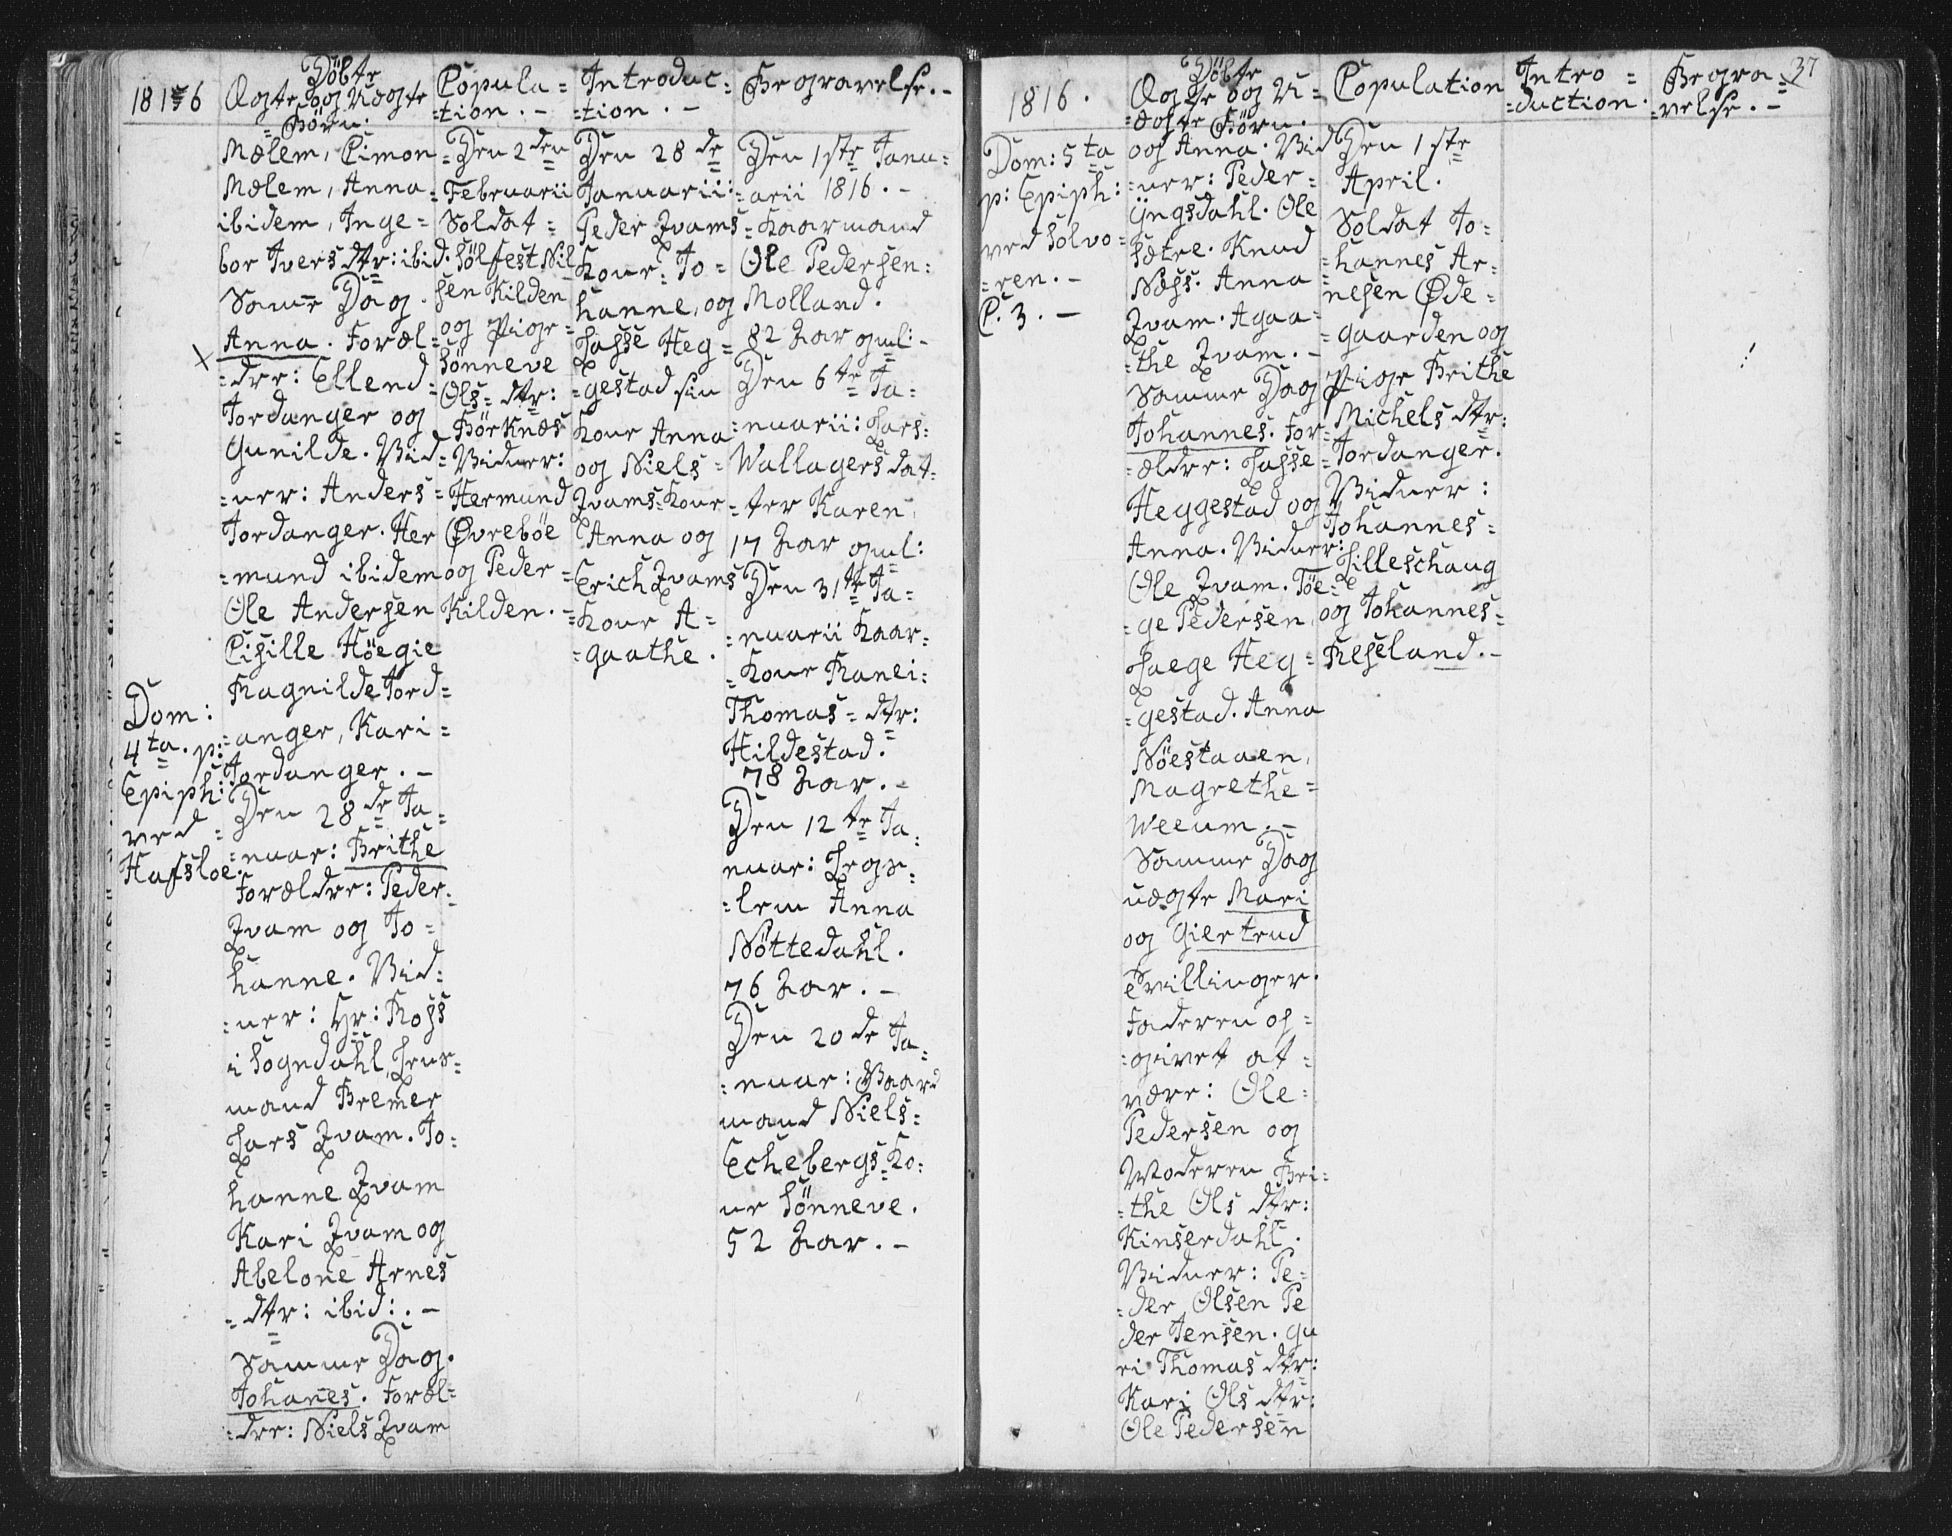 1816
Døbte
Ægte og Uægte
Børn.
Copula=
=tion. -
Introduc=
=tion. -
Begravelse. -
Dom:
4ta. p:
Epiph:
ved
Hafsloe.
Mælem, Cimon
Mælem, Anna
ibidem, Inge=
bor Ivers dtr: ibid.
Samme Dag.
Anna. Foræl=
=dre: Ellend
Jordanger og
Gunilde. Vid=
=ner: Anders
Jordanger. Her
=mund ibidem
Ole Andersen
Cisille Höegie
Ragnilde Jord=
=anger, Kari=
Jordanger. -
Den 28de Ja=
=nuar: Brithe
Forældre: Peder
Qvam og Jo=
hanne. Vid=
=ner: Hr: Ross
i Sogndahl, Lens=
mand Bremer
Lars Qvam. Jo=
hanne Qvam
Kari Qvam og
Abelone Arnes
=dtr: ibid:. -
Samme Dag.
Johanes. Foræl=
=dre: Niels Qvam
=Den 2den
Februarii
Soldat=
Sölfest Nil
sen Kilden
og Pige=
Sönneve
Ols=dtr:
Börknæs
Vidner:
Hermund
Øvreböe
og Peder=
Kilden. -
Den 28de
Januarii:
Peder Qvams
Kone: Jo=
hanne, og
Lasse Heg=
=gestad sin
Kone Anna
og Niels=
Qvams Kone
Anna og
Erich Qvams
=Kone A=
=gaathe.
Den 1ste Janu=
=arii 1816. -
=Kaarmand
Ole Pedersen:
Molland.
82 Aar gml: -
Den 6te Ja=
=nuarii: Lars:
Wallagers dat=
=ter Karen,
17 Aar gml:
Den 31te Ja=
=nuarii Kaar=
=Kone Ranei=
Thomas=dtr:
Hildestad.
78 Aar. -
Den 12te Ja=
nuar: Lege=
=lem Anna
Nöttedahl.
76 Aar. -
Den 20de Ja=
=nuar: Gaard
mand Niels=
Echebergs Ko=
ne Sönneve.
52 Aar. -
37
1816.
Døbte
Ægte og U=
=ægte Børn.
Copulation
Intro=
=duction.
Begra=
=velse. -
Dom: 5ta
p: Epiph:
ved Solvo=
=ren. -
C. 3. -
og Anna. Vid
=ner: Peder=
Yngsdahl. Ole
Sætre. Knud
Næss. Anna
Qvam. Agaa=
=the Qvam. -
Samme Dag
Johannes. For=
=ældre: Lasse
Heggestad og
Anna. Vidner:
Ole Qvam. Töe=
=ge Pedersen,
Laege Heg=
=gestad. Anna
Nöestaaen,
Magrethe=
Weeum. -
Samme Dag
uægte Mari
og Giertrud
Tvillinger.
Faderen op=
=givet at=
være: Ole=
Pedersen og
Moderen Bri=
=the Ols dtr:
Kinserdahl.
Vidner: Pe=
=der Olsen Pe
der Jensen. Gu
ri Thomas dtr:
Kari Ols dtr:
Ole Pedersen
Den 1ste
April.
Soldat Jo=
=hannes Ar=
nesen Øde=
=gaarden og
Pige Brithe
Michels dtr:
=Jordanger.
Vidner:
Johannes=
Lilleschaug
og Johannes=
Reseland. -